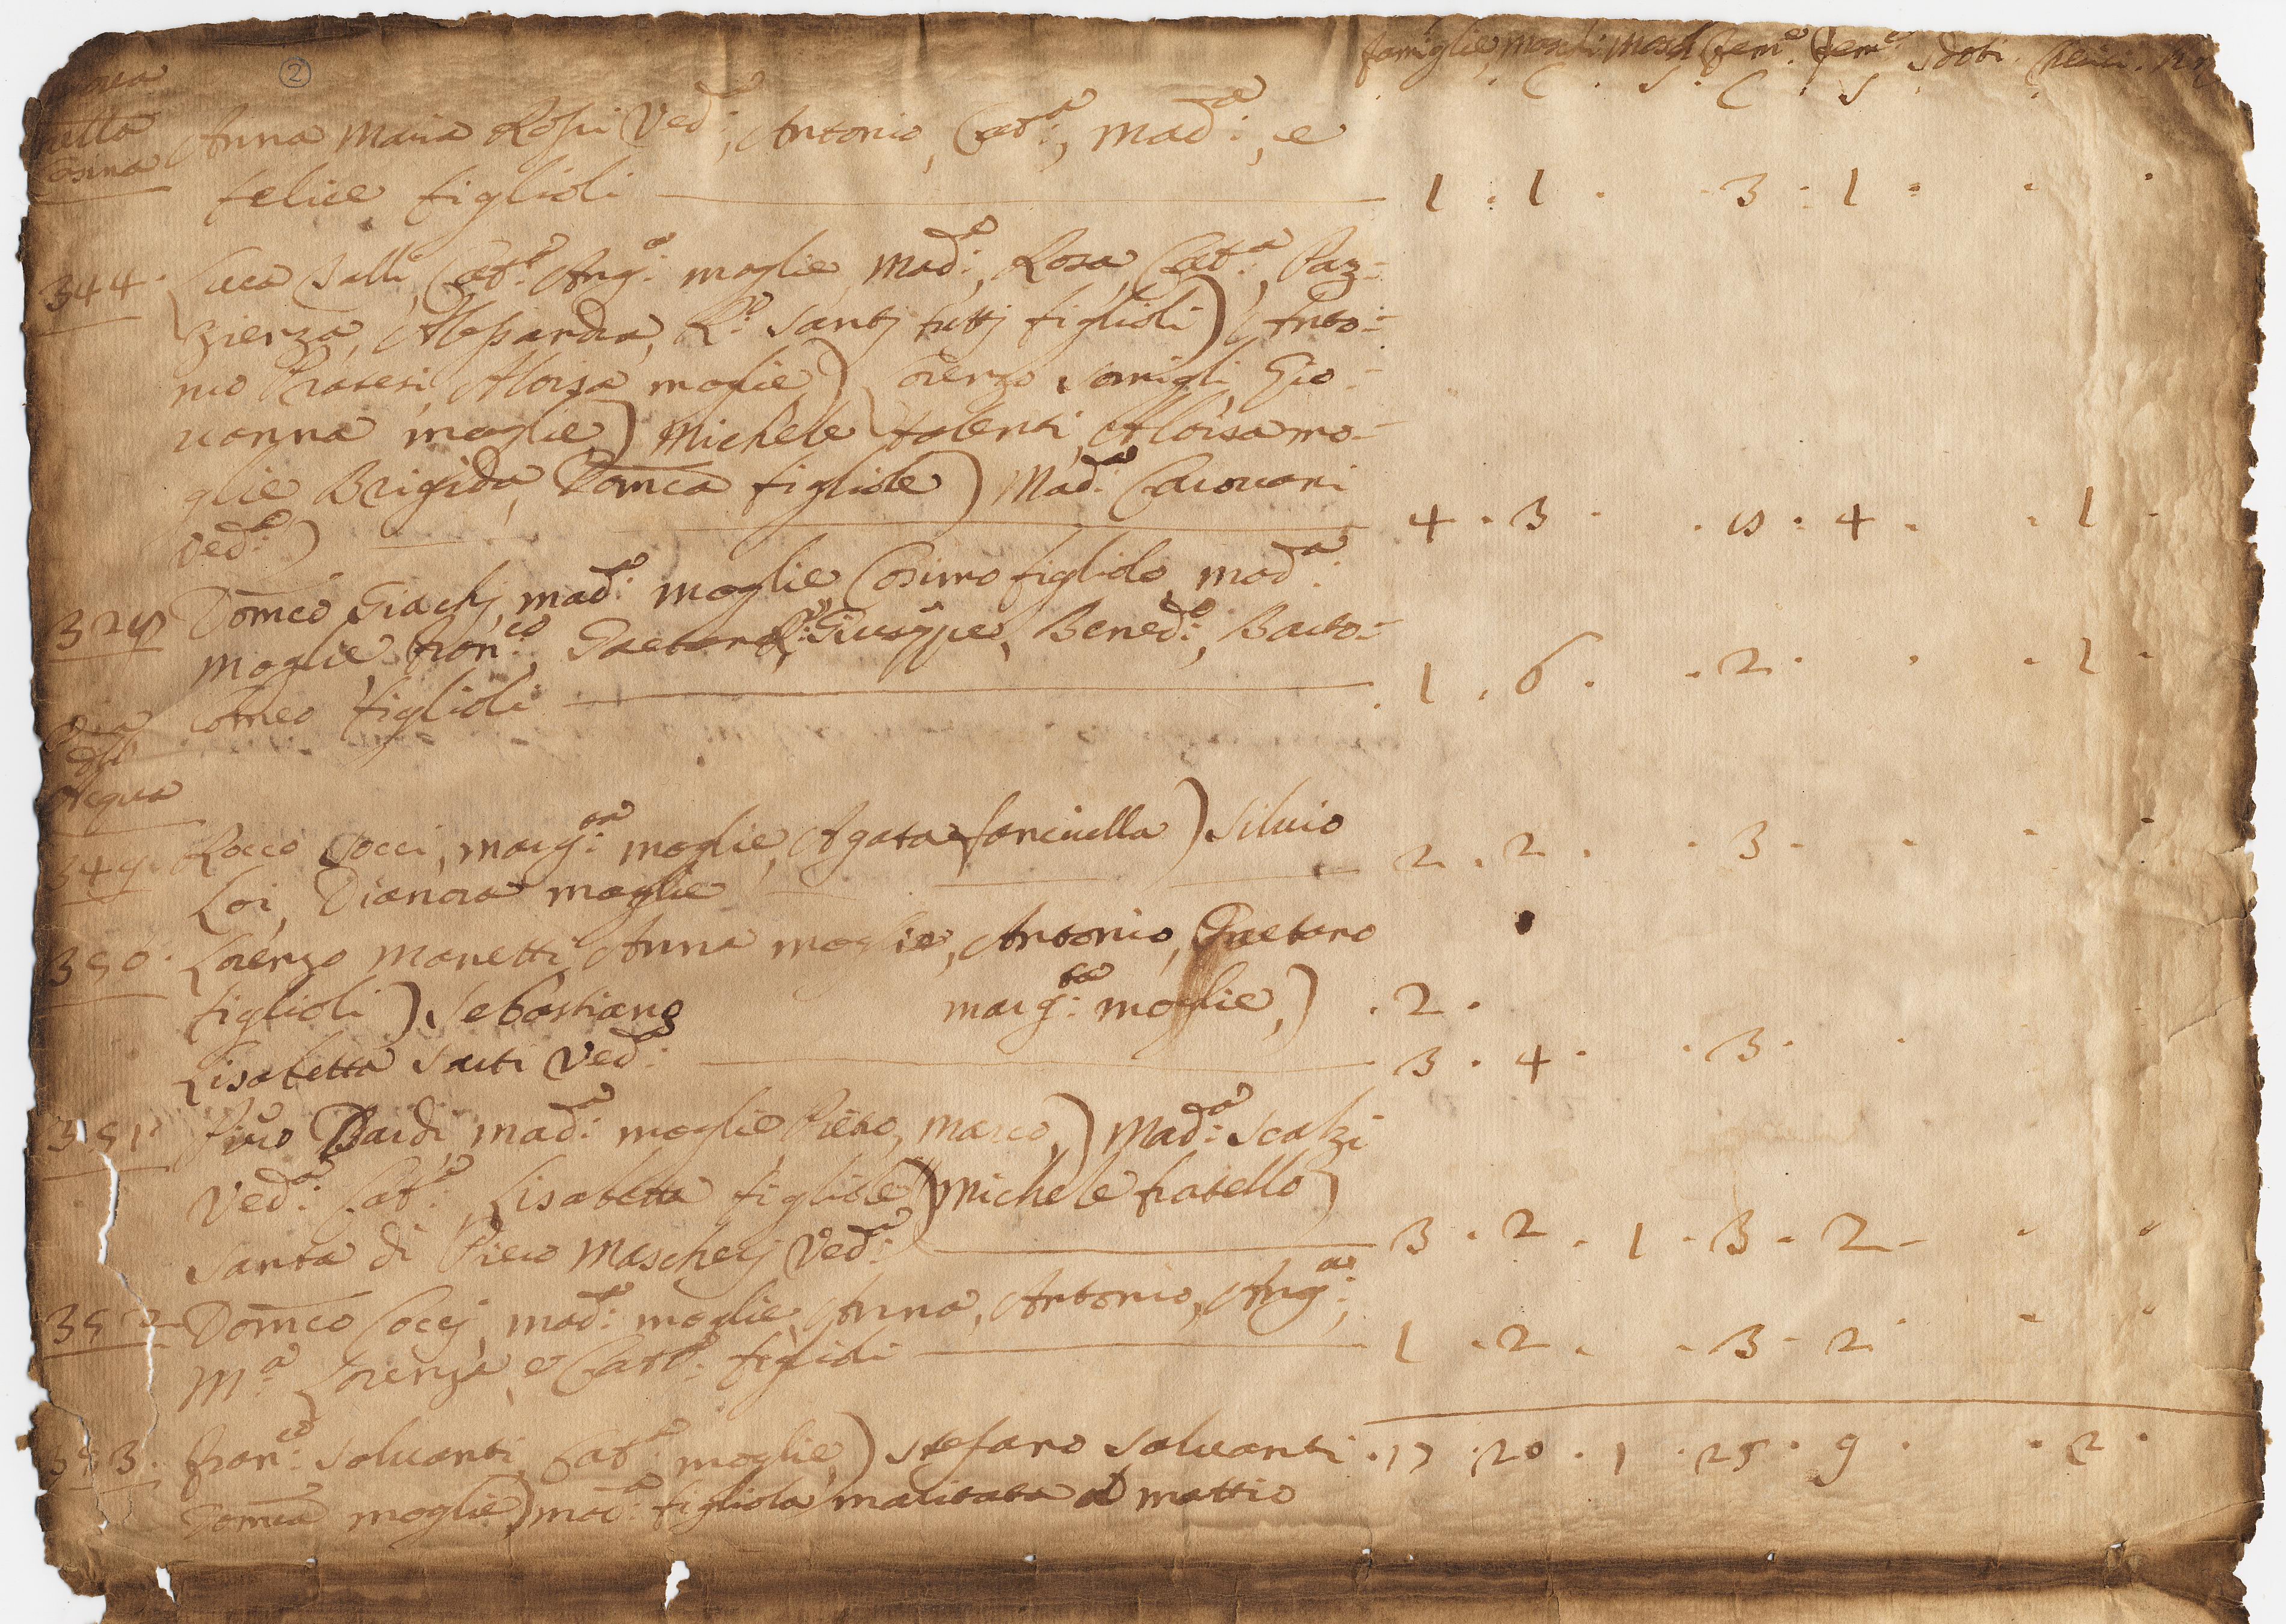 famiglie, maschi, masch, fem.e fem.e
. C . S . C . S .
2
Anna Maria Rossi Ved.a, Antonio, Cat.a, Mad.a, e
felice figlioli 1 . 1 . . 3 . 1 .
344. Luca Salli, Cat.a Ang.a moglie, Mad.a, Rosa, Cat.a, Paz=
zienza, Alessandra, L.o Santj tuttj figlioli) Anto=
nio Pratesi, Aloisa moglie) Lorenzo Somigli, Gio=
uanna moglie) Michele falenti, Aloisa mo=
glie Brigida, Domca figliole) Mad.a
Ved.a) 4 . 3 . . 4 . . 1 .
Domco Giachj, Mad.a moglie, Cosimo figliolo, Mad.a
moglie, fran.co, Gaetano, Giuseppe, Bened.o, Barto=
lomeo figlioli . 1 . 6 . . 2 . . . 1 .
Via
dell
Acqua
349. Rocco Cocci, Marg.ta moglie, Agata fanciulla) Siluio
Loi, Dianora moglie 2 . 2 . . 3 .
350. Lorenzo Manetti, Anna moglie, Antonio, Gaetano
figlioli) Sebastiano marg.ta moglie,) . 2 .
Lisabetta Sarti Ved.a 3 . 4 . . 3 .
351 Piero Bardi, Mad.a moglie Piero, Marco,) Mad.a Scalzi
Ved.a Cat.a Lisabetta figliole) Michele fratello)
Santa di Piero Mascherj Ved.a 3 . 2 . 1 . 3 . 2 -
352 Domco Coccj, Mad.a moglie, Anna, Antonio, Ang.a,
M.a Lorenza, e Cat.a figlioli 1 . 2 . . 3 - 2
353. fran.co Saluanti, Cat.a moglie) Stefano Saluanti . 17 . 20 . 1 . 25 . 9 . . 2 .
Domca moglie) Mad.a figliola maritata a Mattio